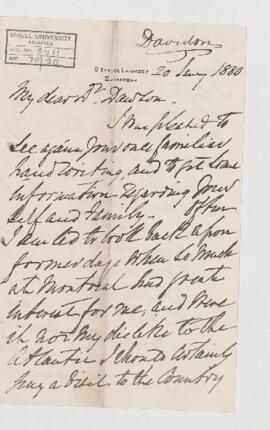 Davidson
McGILL UNIVERSITY
ARCHIVES
ACC. NO.
REF.
EDINBURGH
20 Jany 1880
My dear Dr Dawson.
I was pleased to
see again your once familiar
hand writing, and to get some
information regarding your
self and family. Often
I am led to look back upon
former days when so much
at Montreal had great
interest for me, and were
it not my dislike to the
Atlantic I should certainly
pay a visit to the Country